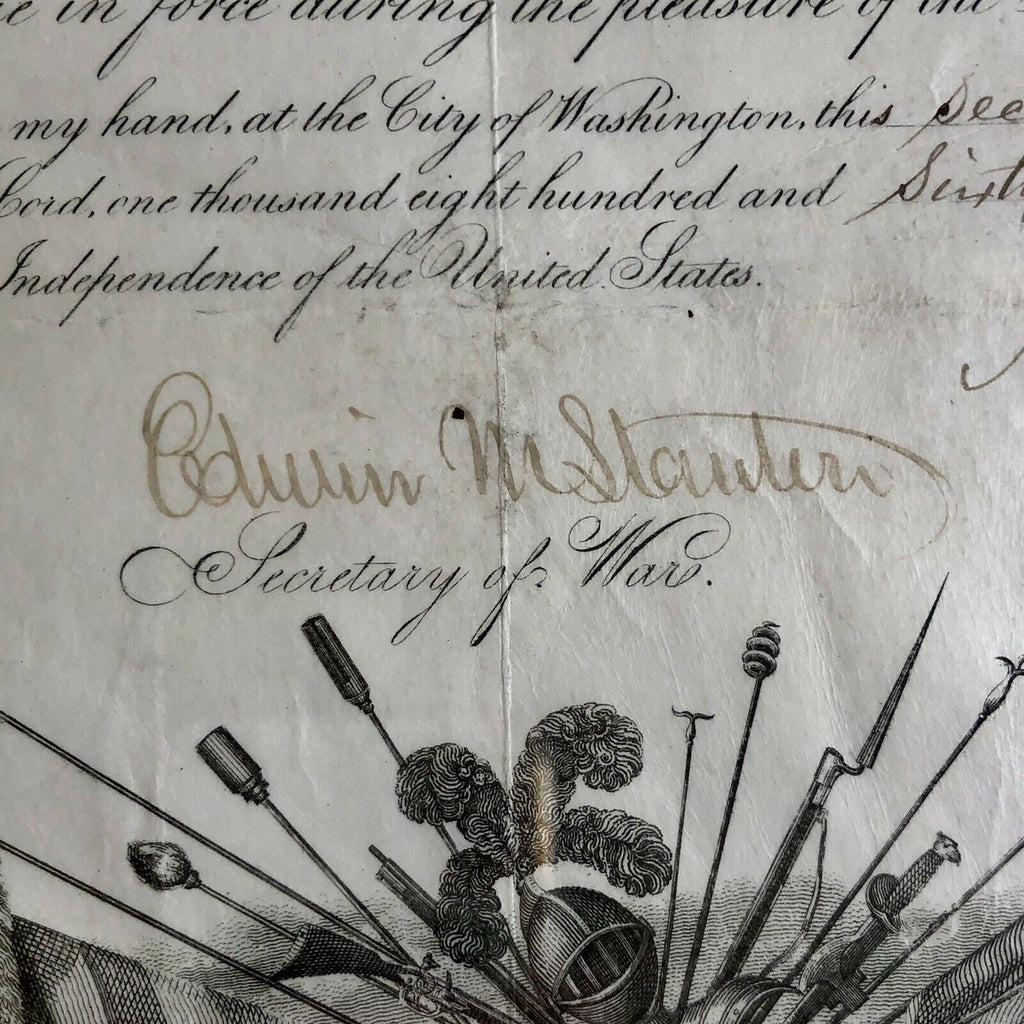 in force during the pleasure of the
my hand, at the City of Washington, this Sec
Lord, one thousand eight hundred and Sixty
Independence of the United States.
Edwin M Stanton
Secretary of War.